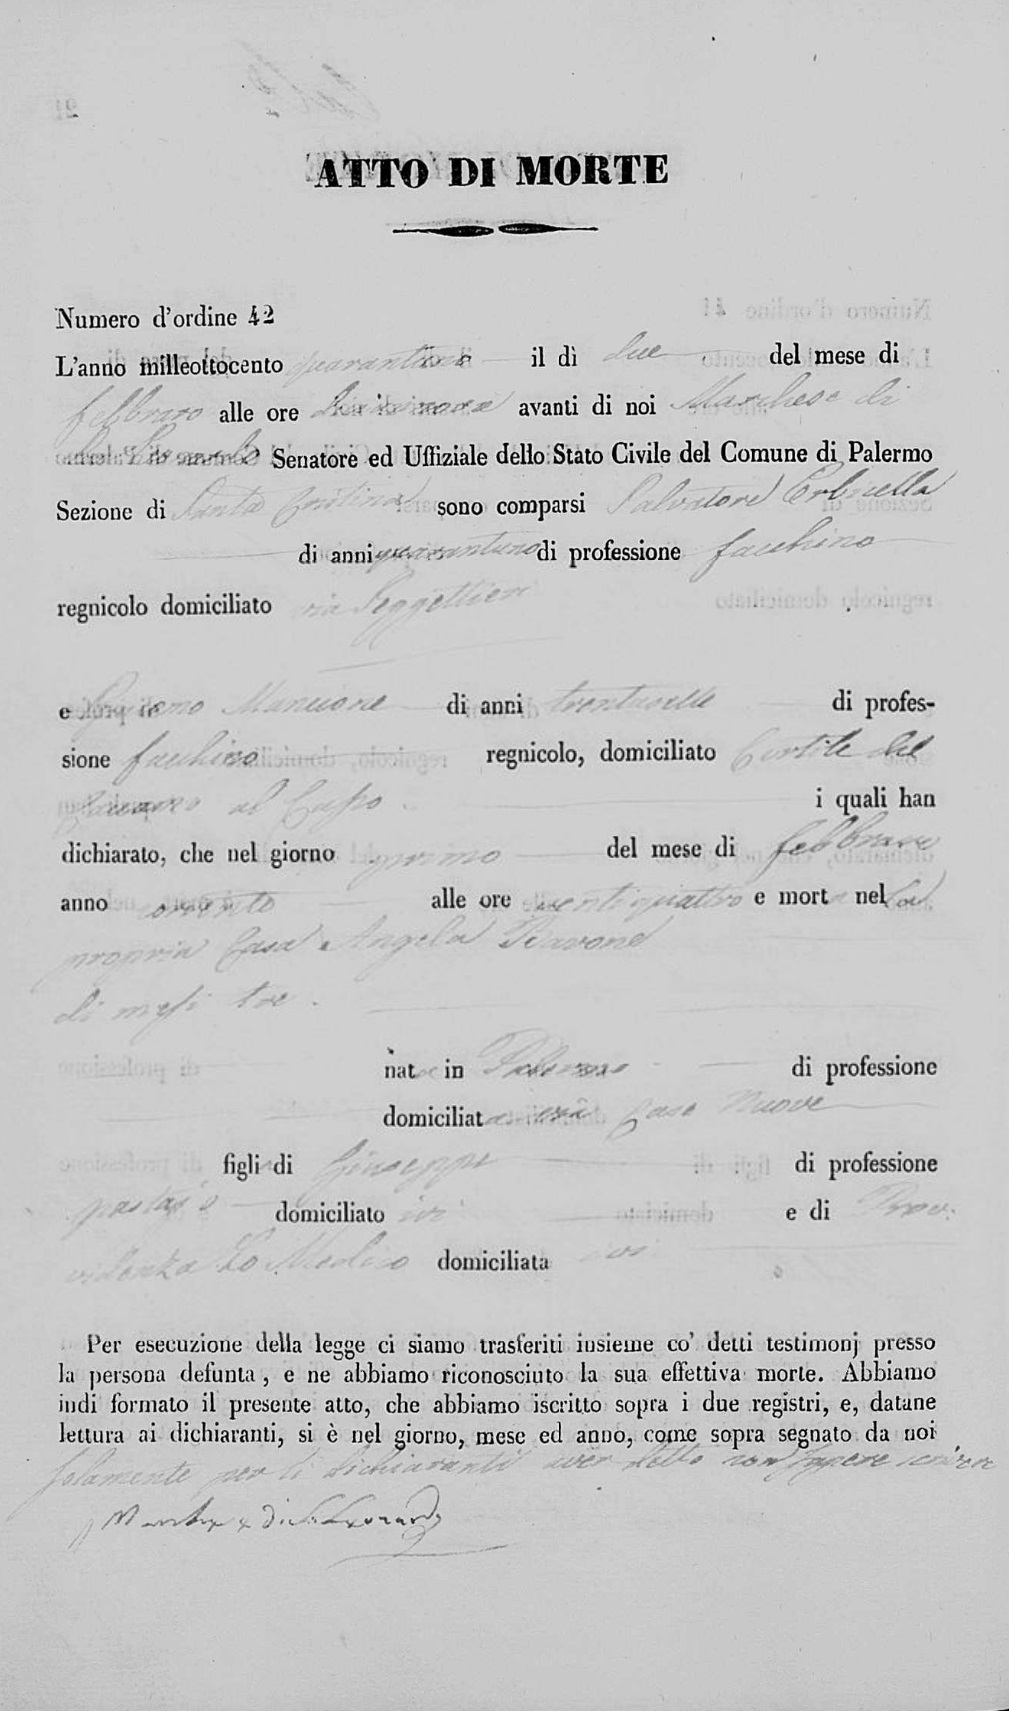 ATTO DI MORTE
Numero d'ordine 42
L'anno milleottocento quarantuno il dì due del mese di
febbraro alle ore avanti di noi Marchese di
Senatore ed Uffiziale dello Stato Civile del Comune di Palermo
Sezione di Santa Cristina sono comparsi Salvatore
di anni quarantuno di professione facchino
regnicolo domiciliato via Seggettieri
e Mancione di anni di profes-
sione facchino regnicolo, domiciliato Cortile del
al Capo i quali han
dichiarato, che nel giorno primo del mese di febbraro
anno corrente alle ore ventiquattro è mort nel la
propria Casa Angela Barone
di mesi tre.
nata in Palermo di professione
domiciliata via Case Nuove
figli di Giuseppe di professione
domiciliato ivi e di Prov-
videnza Lo Medico domiciliata ivi
Per esecuzione della legge ci siamo trasferiti insieme co' detti testimonj presso
la persona defunta, e ne abbiamo riconosciuto la sua effettiva morte. Abbiamo
indi formato il presente atto, che abbiamo iscritto sopra i due registri, e, datane
lettura ai dichiaranti, si è nel giorno, mese ed anno, come sopra segnato da noi
solamente per li dichiaranti aver detto non sapere scrivere
Marchese di S. Leonardo